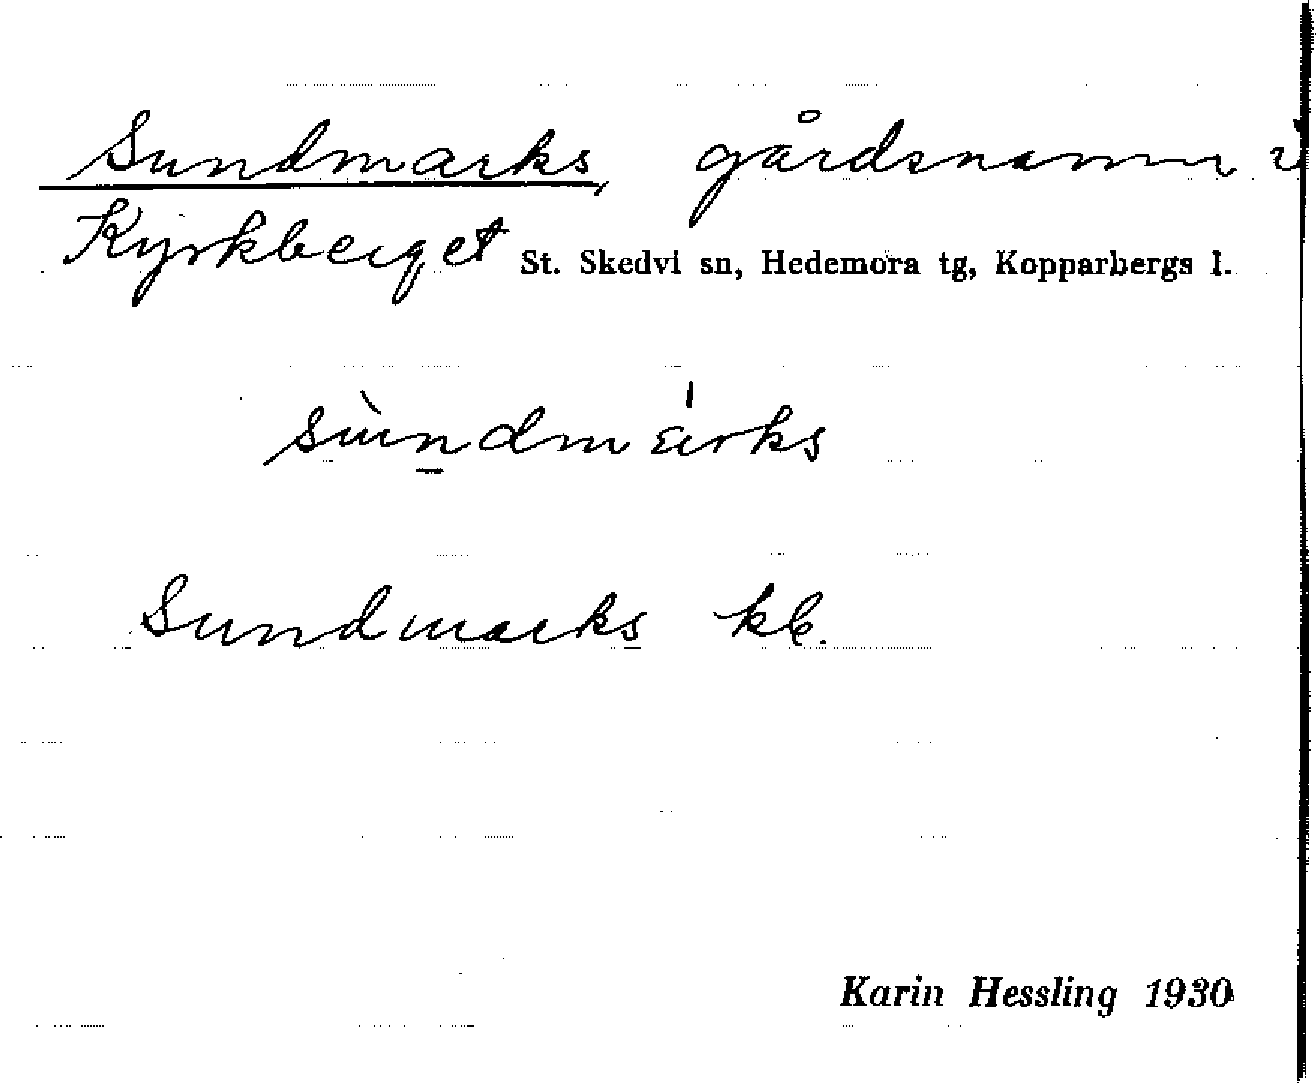 Sundmarks, gårdsnamn i
Kyrkberget St. Skedvi sn, Hedemora tg, Kopparbergs l.
Sundmarks kb.
Karin Hessling 1930